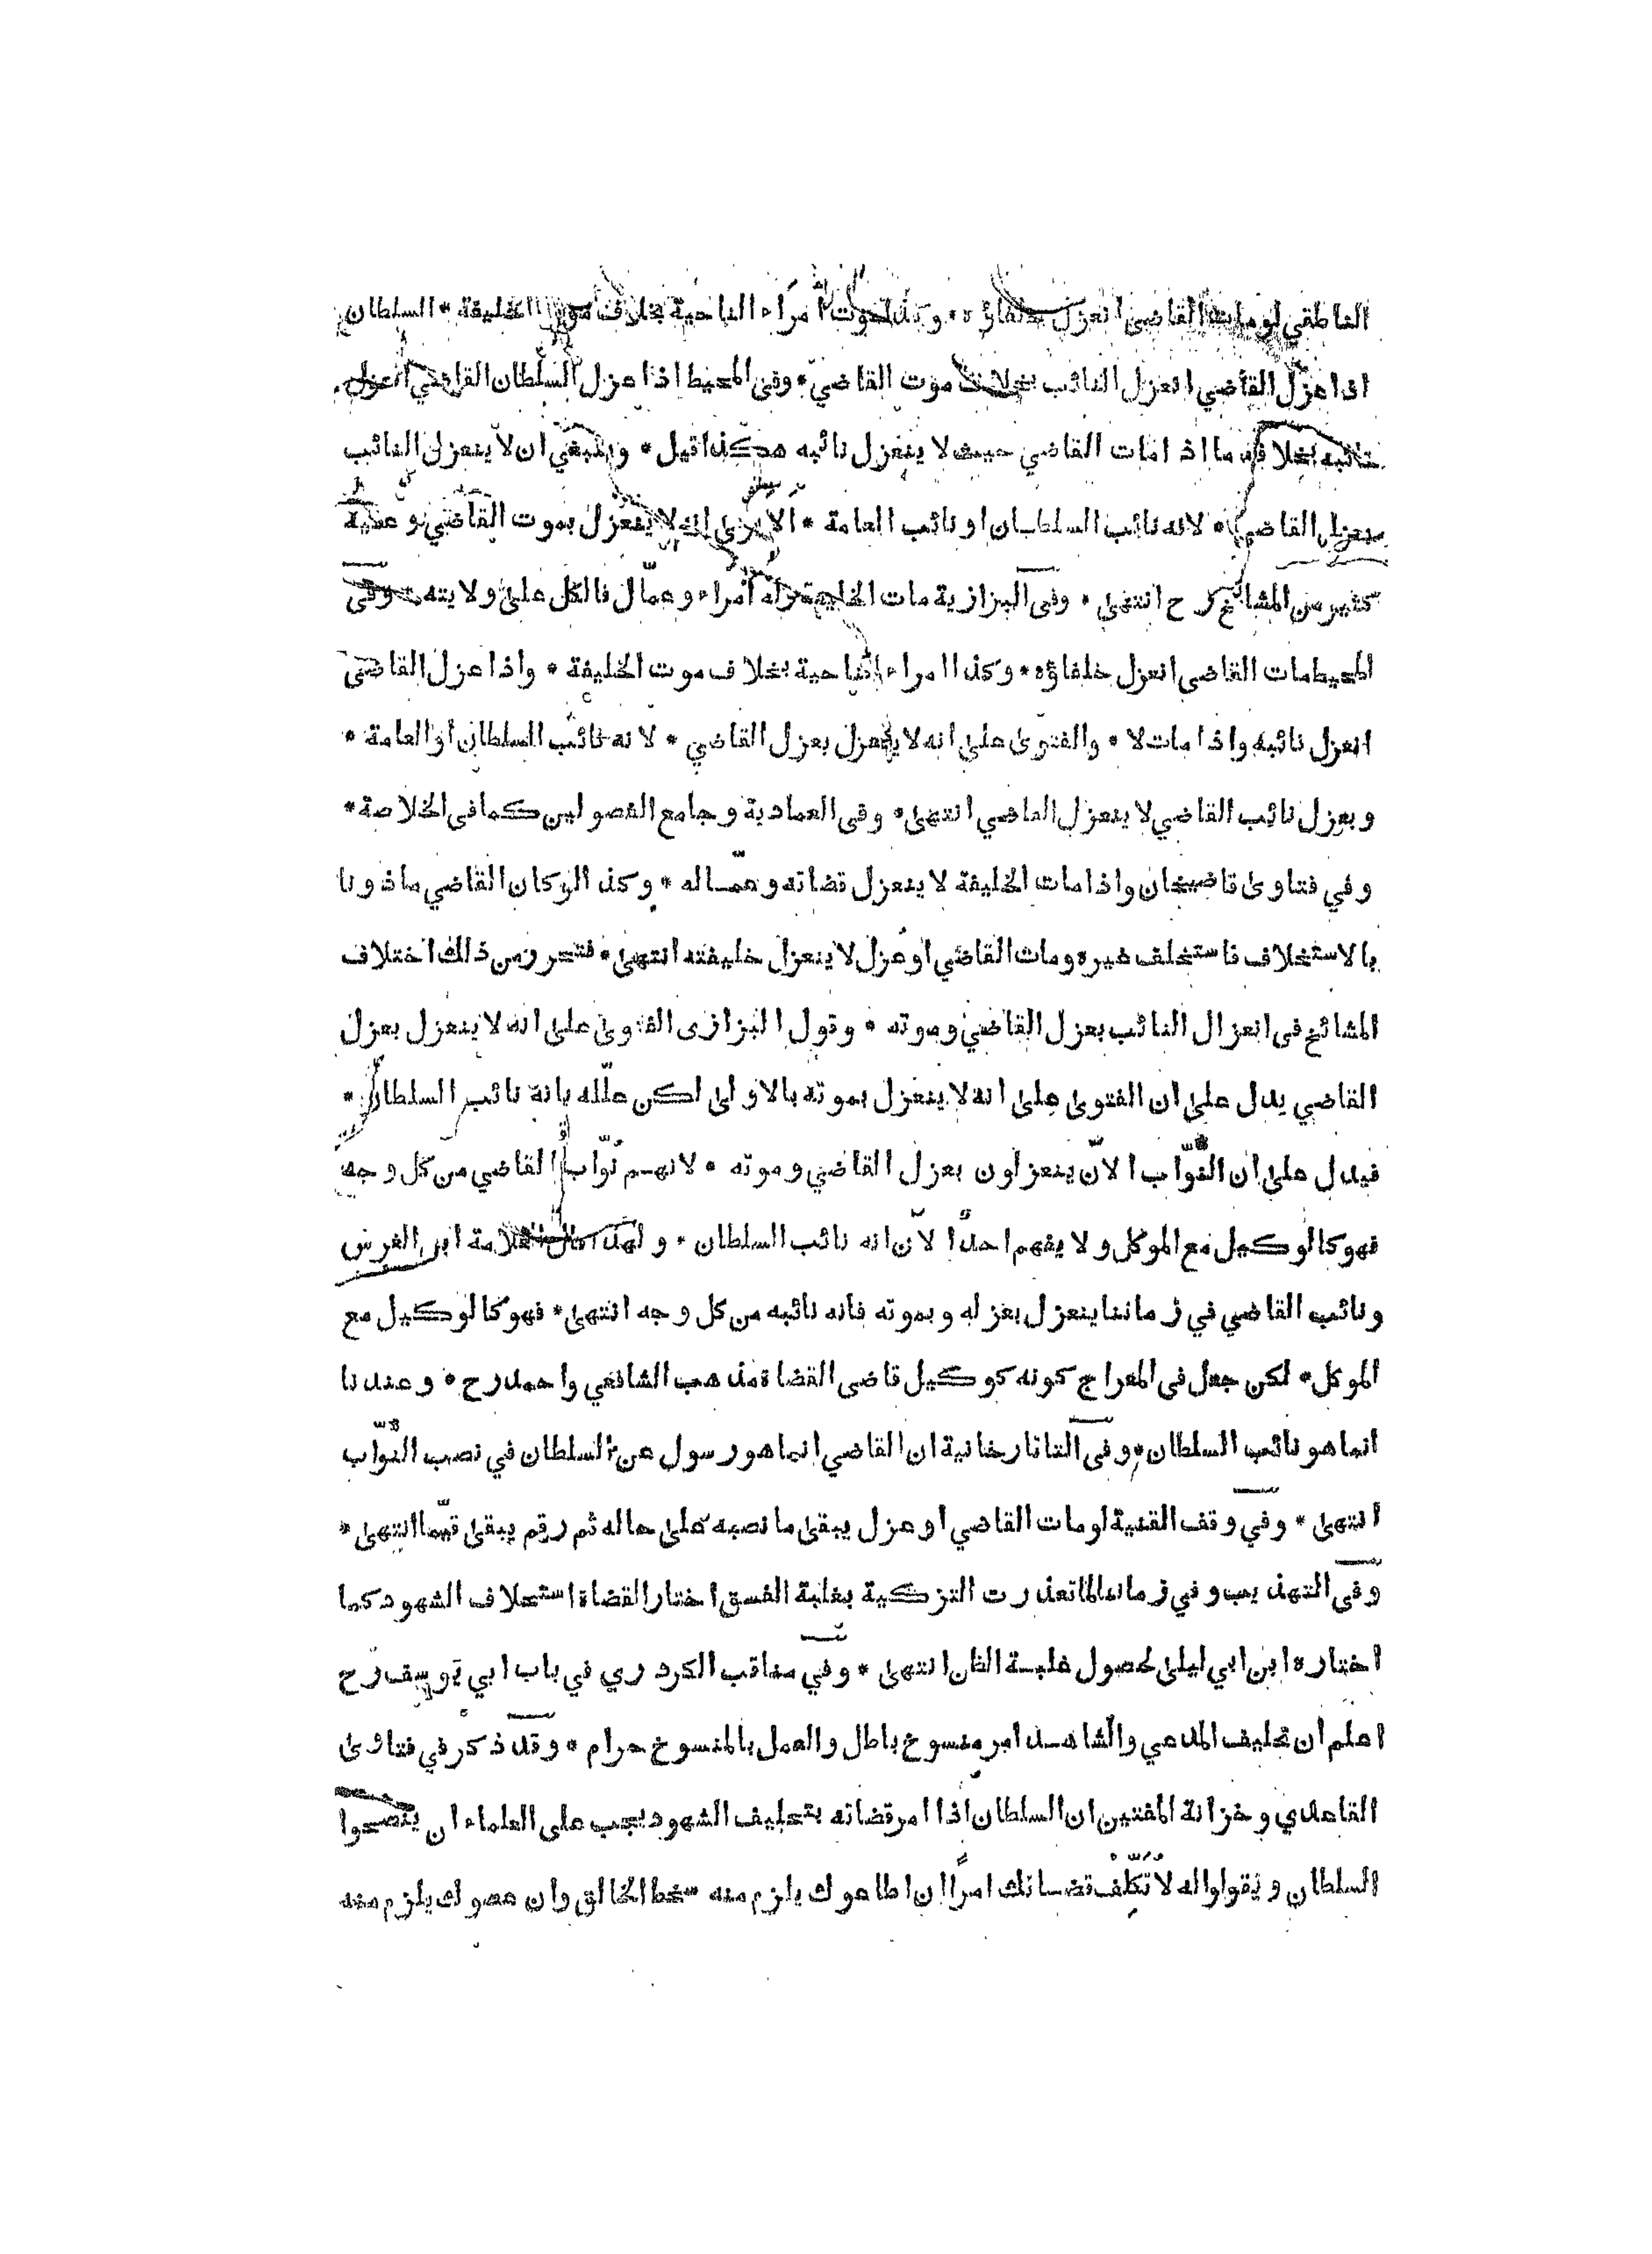 الناطقي لومات القاضي انعزل خلفاؤه * وكذا موت امراء الناحية بخلاف موت الخليفة * السلطان
اذا عزل القاضي انعزل النائب بخلاف موت القاضي * وفي المحيط اذا عزل السلطان القاضي انعزل
نائبه بخلاف ما اذا مات القاضي حيث لا ينعزل نائبه هكذا قيل * وينبغي ان لا ينعزل النائب
بعزل القاضي * لانه نائب السلطان او نائب العامة * الا يرى انه لا ينعزل بموت القاضي وعليه
كثير من المشائخ رح انتهى * وفي البزازية مات الخليفة وله امراء وعمّال فالكل على ولايته * وفي
المحيط مات القاضي انعزل خلفاؤه * وكذا امراء الناحية بخلاف موت الخليفة * واذا عزل القاضي
انعزل نائبه واذا مات لا * والفتوى على انه لا ينعزل بعزل القاضي * لانه نائب السلطان او العامة *
وبعزل نائب القاضي لا ينعزل القاضي انتهى * وفي العمادية وجامع الفصولين كما في الخلاصة *
وفي فتاوى قاضيخان واذا مات الخليفة لا ينعزل قضاته وعمّاله * وكذا لو كان القاضي ماذونا
بالاستخلاف فاستخلف غيره ومات القاضي او عزل لا ينعزل خليفته انتهى * فتحرر من ذلك اختلاف
المشائخ في انعزال النائب بعزل القاضي وموته * وقول البزازي الفتوى على انه لا ينعزل بعزل
القاضي يدل على ان الفتوى على انه لا ينعزل بموته بالاولى لكن علّله بانه نائب السلطان *
فيدل على ان النوّاب الآن ينعزلون بعزل القاضي وموته * لانهم نوّاب القاضي من كل وجه
فهو كالوكيل مع الموكل ولا يفهم احدا الآن انه نائب السلطان * ولهذا قال العلامة ابن الغرس
ونائب القاضي في زماننا ينعزل بعزله وبموته فانه نائبه من كل وجه انتهى * فهو كالوكيل مع
الموكل * لكن جعل في المعراج كونه كوكيل قاضي القضاة مذهب الشافعي واحمد رح * وعندنا
انما هو نائب السلطان * وفي التاتارخانية ان القاضي انما هو رسول عن السلطان في نصب النّواب
انتهى * وفي وقف القنية لومات القاضي او عزل يبقى ما نصبه على حاله ثم رقم يبقى قيّما انتهى *
وفي التهذيب وفي زماننا لما تعذرت التزكية بغلبة الفسق اختار القضاة استحلاف الشهود كما
اختاره ابن ابي ليلى لحصول غلبة الظن انتهى * وفي مناقب الكردري في باب ابي يوسف رح
اعلم ان تحليف المدعي والشاهد امر منسوخ باطل والعمل بالمنسوخ حرام * وقد ذكر في فتاوى
القاعدي وخزانة المفتين ان السلطان اذا امر قضاته بتحليف الشهود يجب على العلماء ان ينصحوا
السلطان ويقولوا له لا تُكَلِّفْ قضاتك امرًا ان اطاعوك يلزم منه سخط الخالق وان عصوك يلزم منه